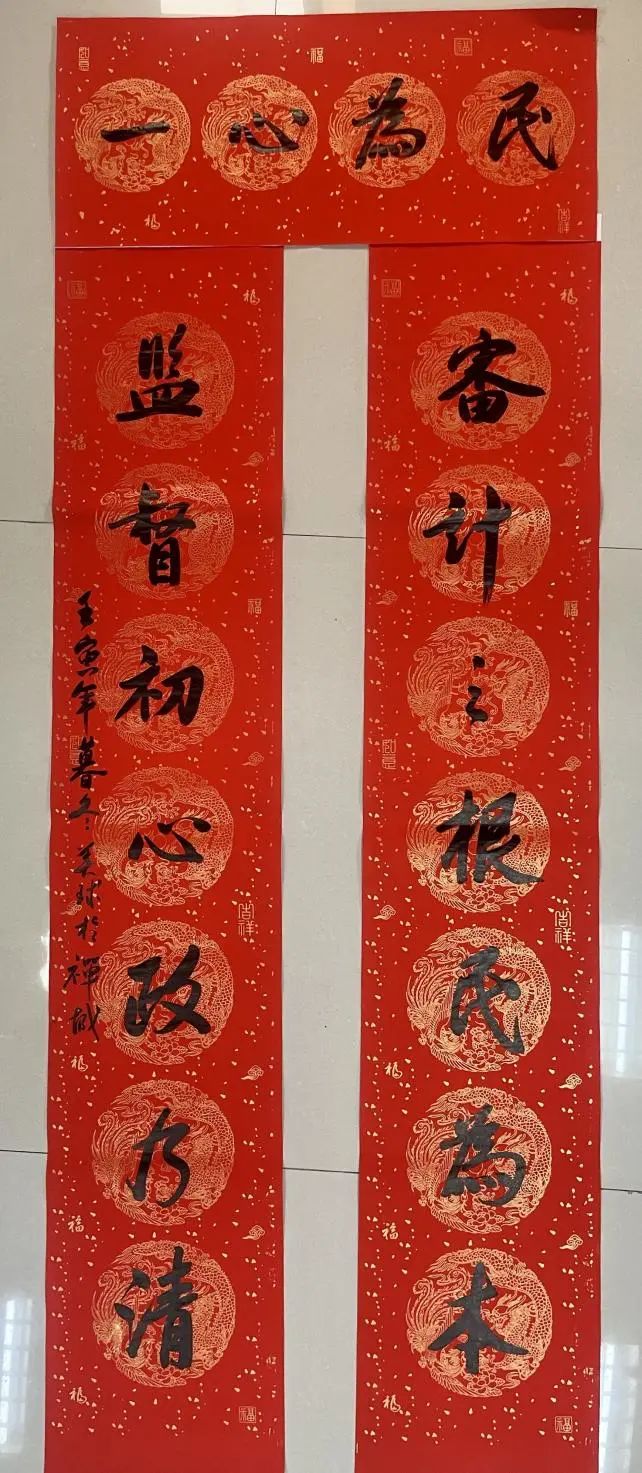 一心為民
審計之根民為本
監督初心政乃清
壬寅年暮冬 於禪城
福
吉祥